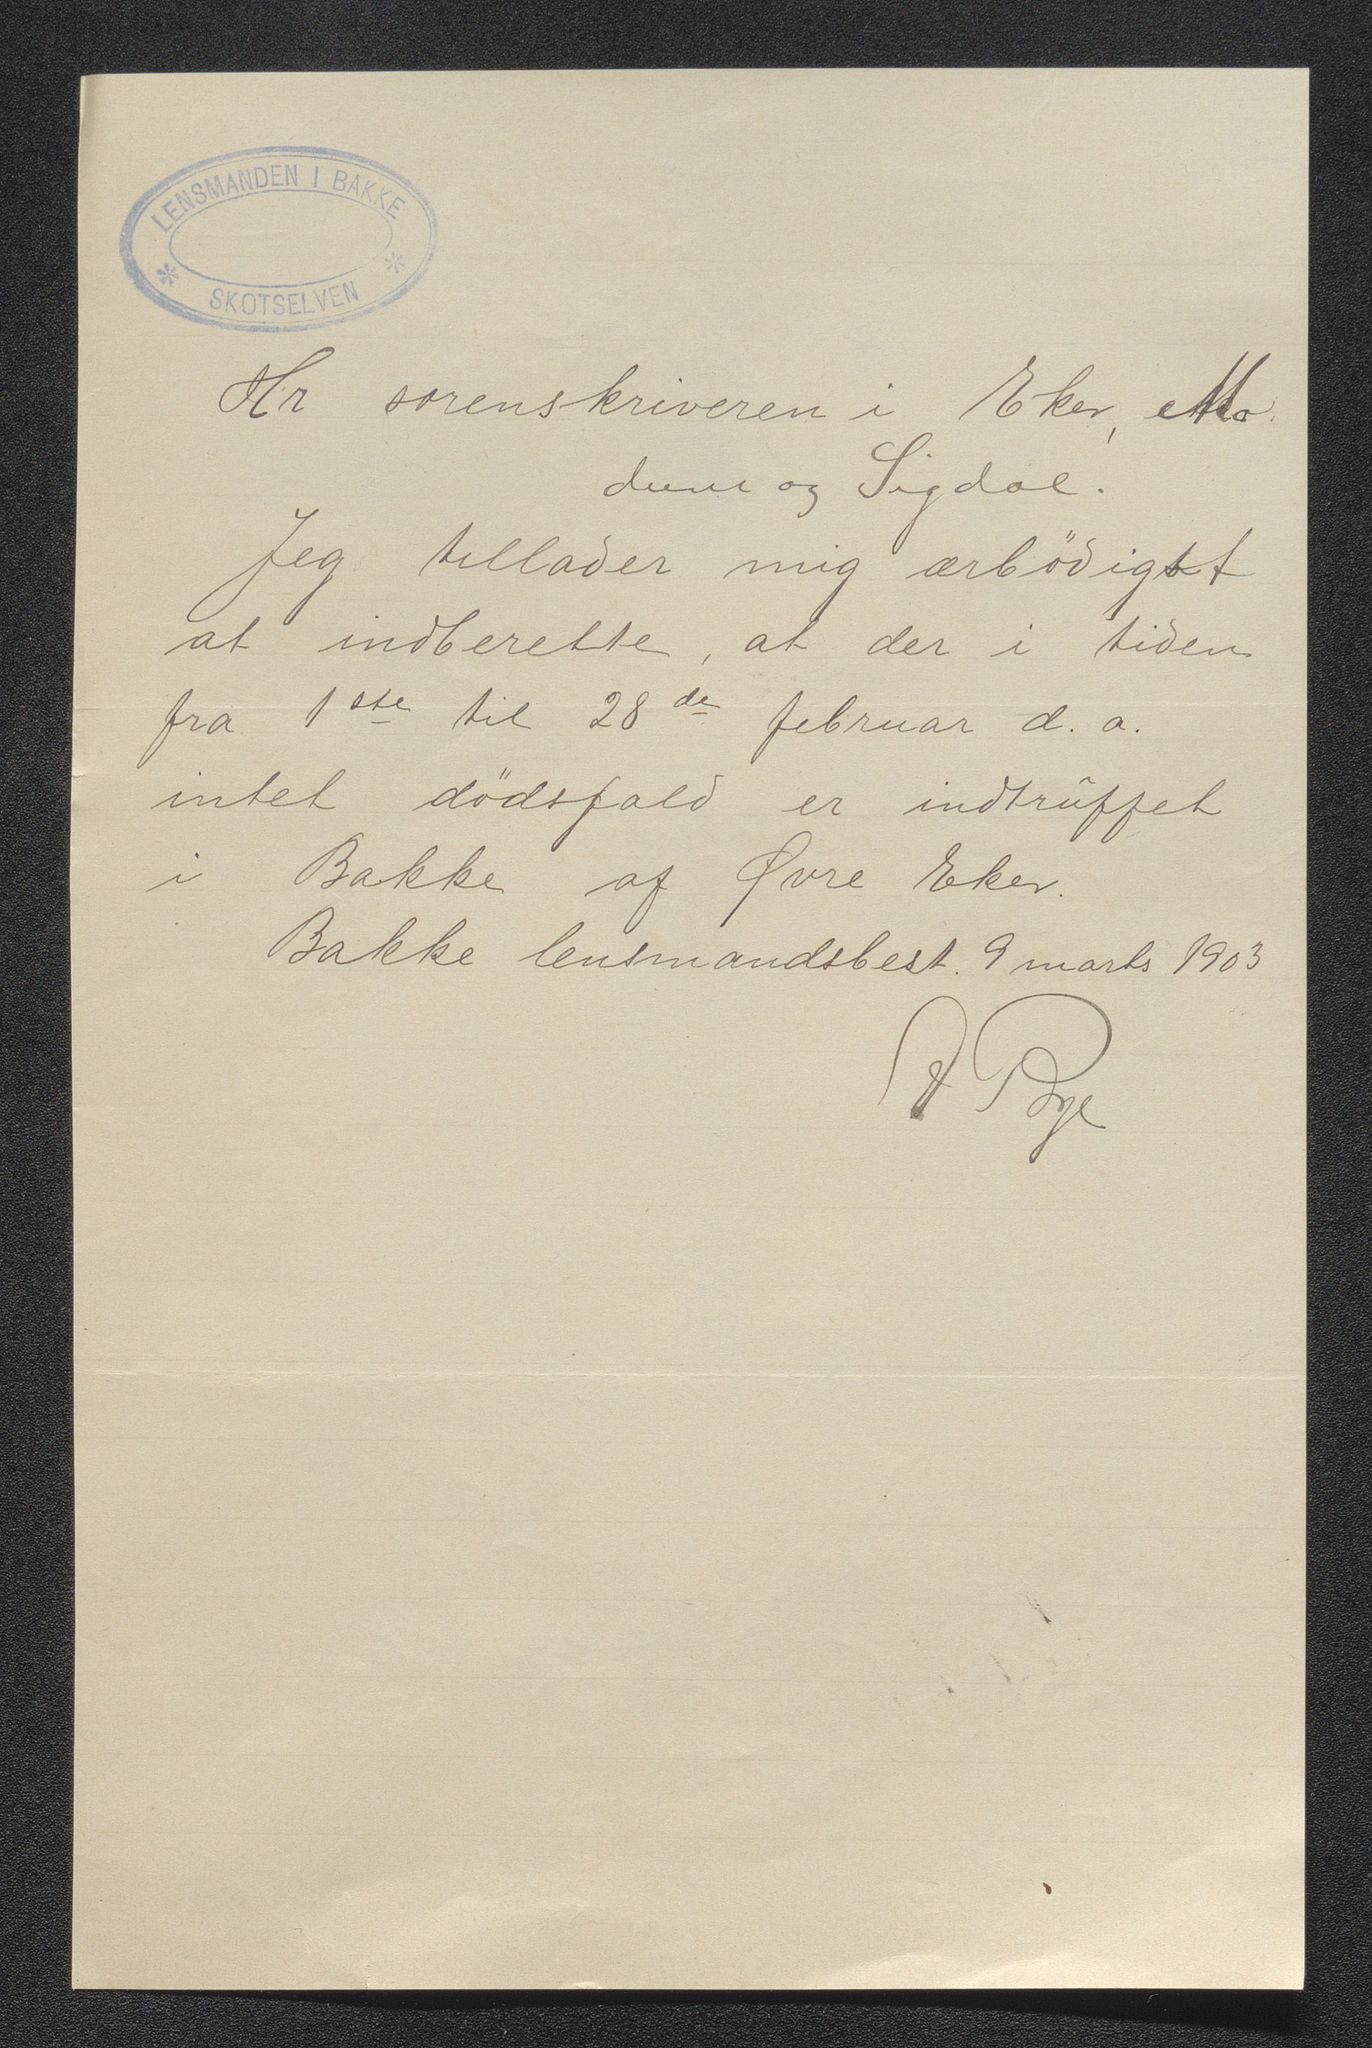 LENSMANDEN I BAKKE
* SKOTSELVEN *
Hr sorenskriveren i Eker, Mo-
dum og Sigdal.
Jeg tillader mig ærbödigst
at indberette, at der i tiden
fra 1ste til 28de februar d. a.
intet dödsfald er indtrüffet
i Bakke af Øvre Eker.
Bakke lensmandsbest. 9 marts 1903
Bye